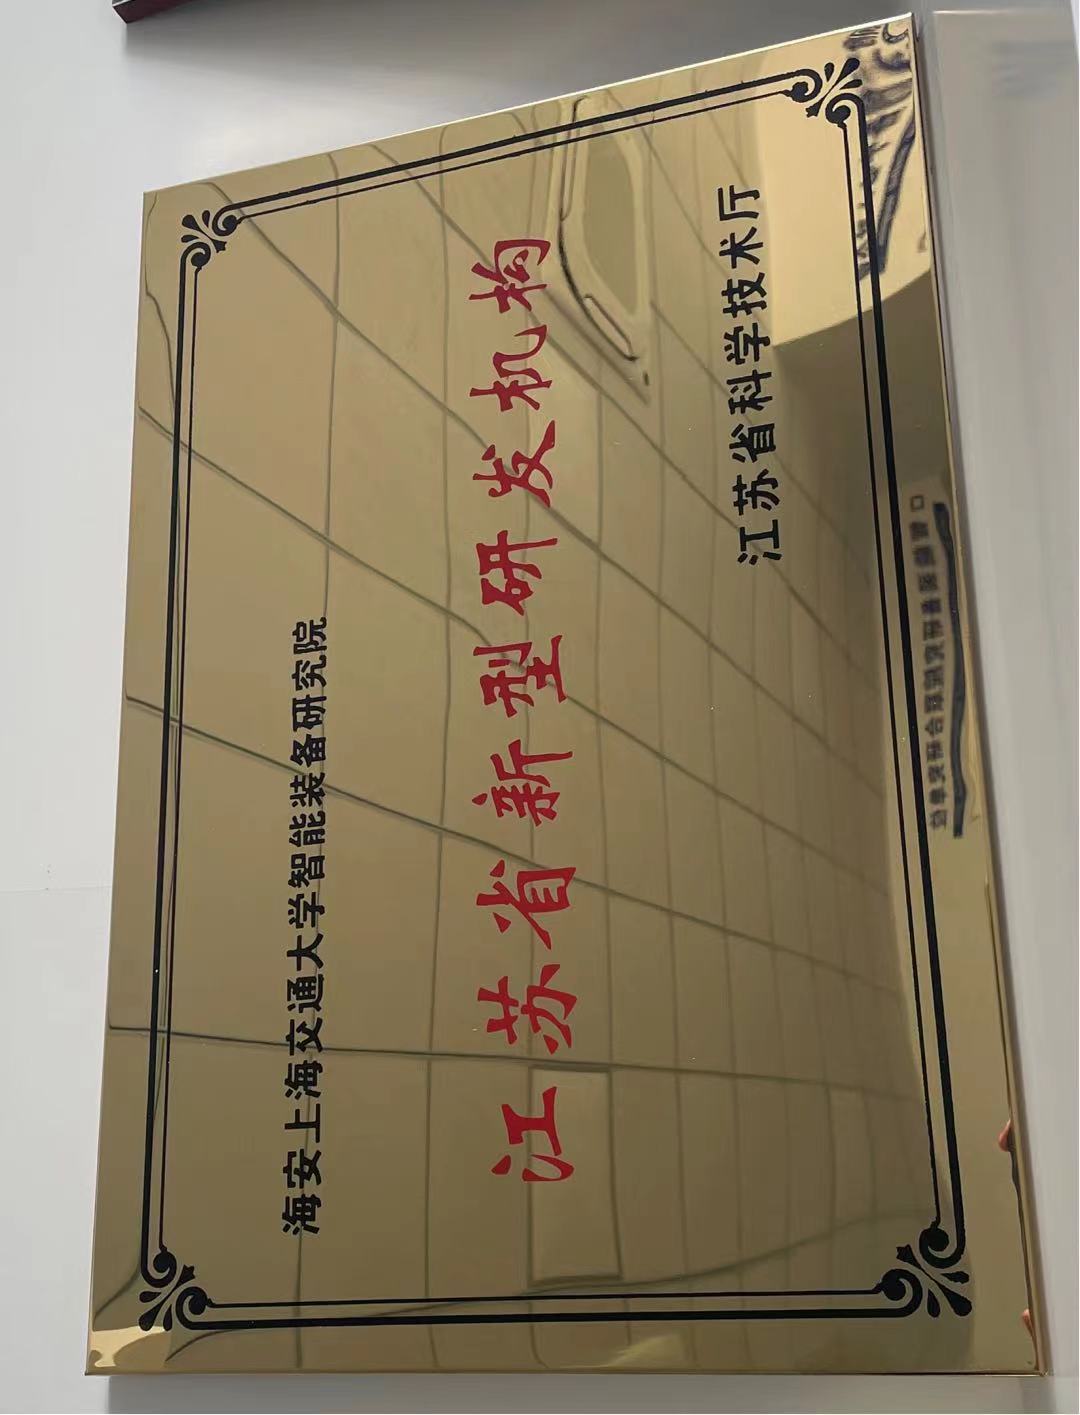 海安上海交通大学智能装备研究院
江苏省新型研发机构
江苏省科学技术厅